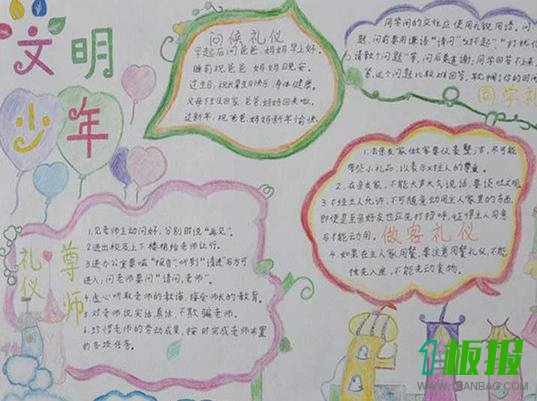 文明
少年
问候礼仪
早起后问爸爸、妈妈早上好。
睡前祝爸爸、妈妈晚安。
父母下班回家,爸爸妈妈回来啦。
过新年,祝爸爸、妈妈新年愉快。
同学间的交往应使用礼貌用语。问
同学礼
1.去亲友家做客要仪表整洁,尽可能
带些小礼品,以表示对主人的尊重。
2.在亲友家,不能大声大气说话,要谈吐文明。
3.不经主人允许,不可随意动用主人家里的东西,
即使是至亲好友也应先打招呼,征得主人同意
与才能动用。
做客礼仪
4.如果在主人家用餐,要注意用餐礼仪,不能
独先入座,不能先动食物。
尊师
礼仪
1.见老师主动问好,分别时说“再见”。
2.进出校及上下楼梯给老师让行。
3.进办公室要喊“报告”,听到“请进”后方可
进入,问老师要问“请问,老师”。
4.虚心听取老师的教诲,接受师长的教育。
5.对老师说实话真话,不欺骗老师。
6.珍惜老师的劳动成果,按时完成老师布置
的各项任务。
板报
WWW.1BANBAO.COM